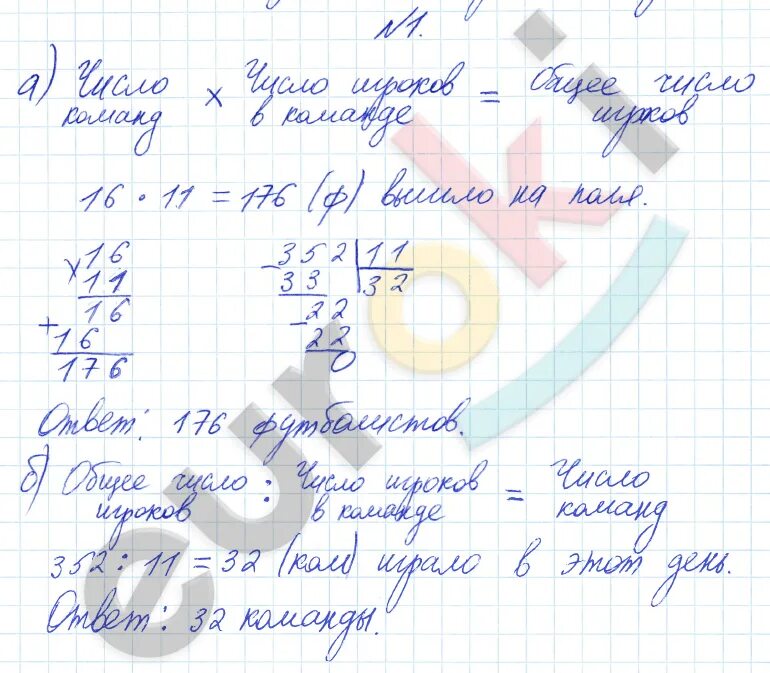 №1.
а) Число команд × Число игроков в команде = Общее число игроков
16 · 11 = 176 (ф) вышло на поля.
×16
11
16
+16
176
-352 | 11
33 | 32
-22
22
0
Ответ: 176 футболистов.
б) Общее число игроков : Число игроков в команде = Число команд
352 : 11 = 32 (ком) играло в этот день.
Ответ: 32 команды.
euroki